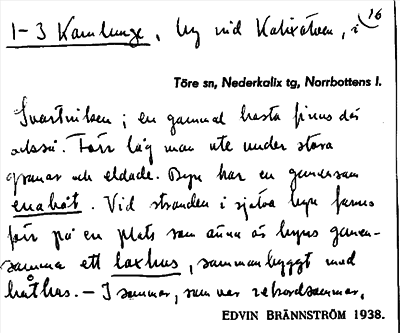 1-3 Kamlunge, by vid Kalixälven, i 16
Töre sn, Nederkalix tg, Norrbottens l.
Svartviken; en gammal kasta finns där
också. Förr låg man ute under stora
granar och eldade. Byn har en gemensam
enabåt. Vid stranden i själva byn fanns
förr på en plats som ännu är byns gemen-
samma ett laxhus, sammanbyggt med
båthus. – I sommar, som var rekordsommar,
EDVIN BRÄNNSTRÖM 1938.